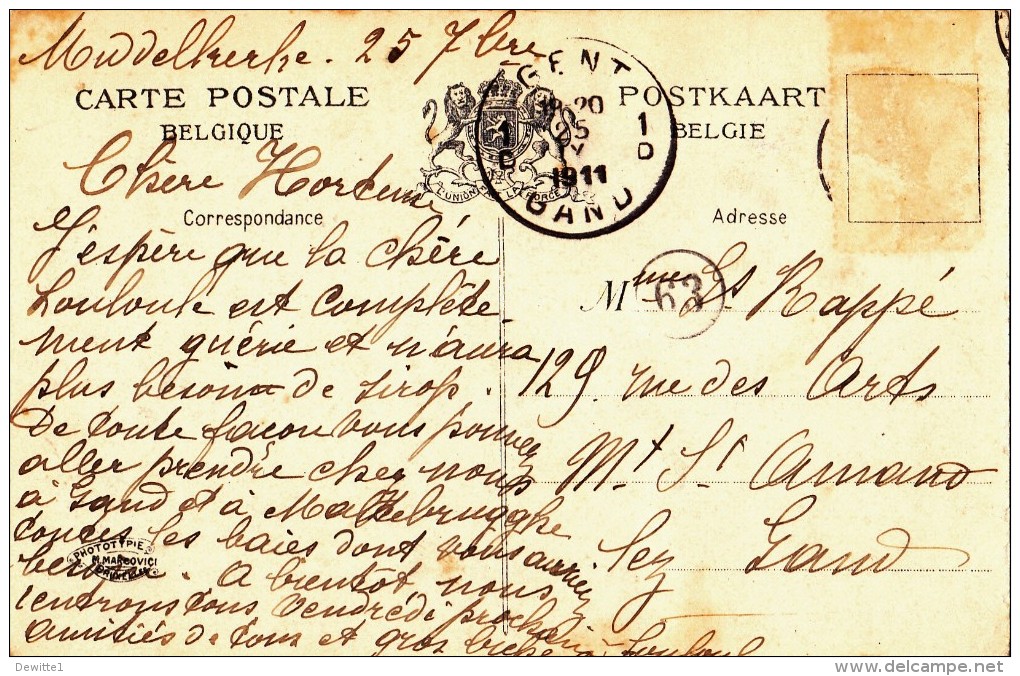 Middelkerke. 25 7bre
CARTE POSTALE
BELGIQUE
POSTKAART
BELGIE
L'UNION FAIT LA FORCE
GENT
19-20
1911
GAND
1 D
Chère Hortense
Correspondance
J'espère que la chère
Louloute est complète
ment guérie et n'aura
plus besoin de sirop.
De toute façon vous pouvez
aller prendre chez nous
à Gand et à Mallebrugghe
toutes les baies dont vous auriez
besoin. A bientôt nous
rentrons tous Vendredi prochain
Amitiés de tous et gros
PHOTOTYPIE
M. MARCOVICI
BRUXELLES
Adresse
Mme Rappé
63
129. rue des Arts
Mt St Amand
lez Gand
Dewitte1
http://www.delcampe.net